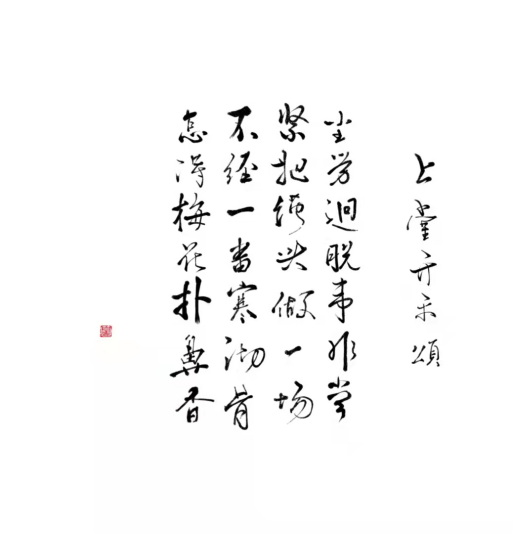 上堂开示颂
尘劳迥脱事非常
紧把绳头做一场
不经一番寒彻骨
怎得梅花扑鼻香